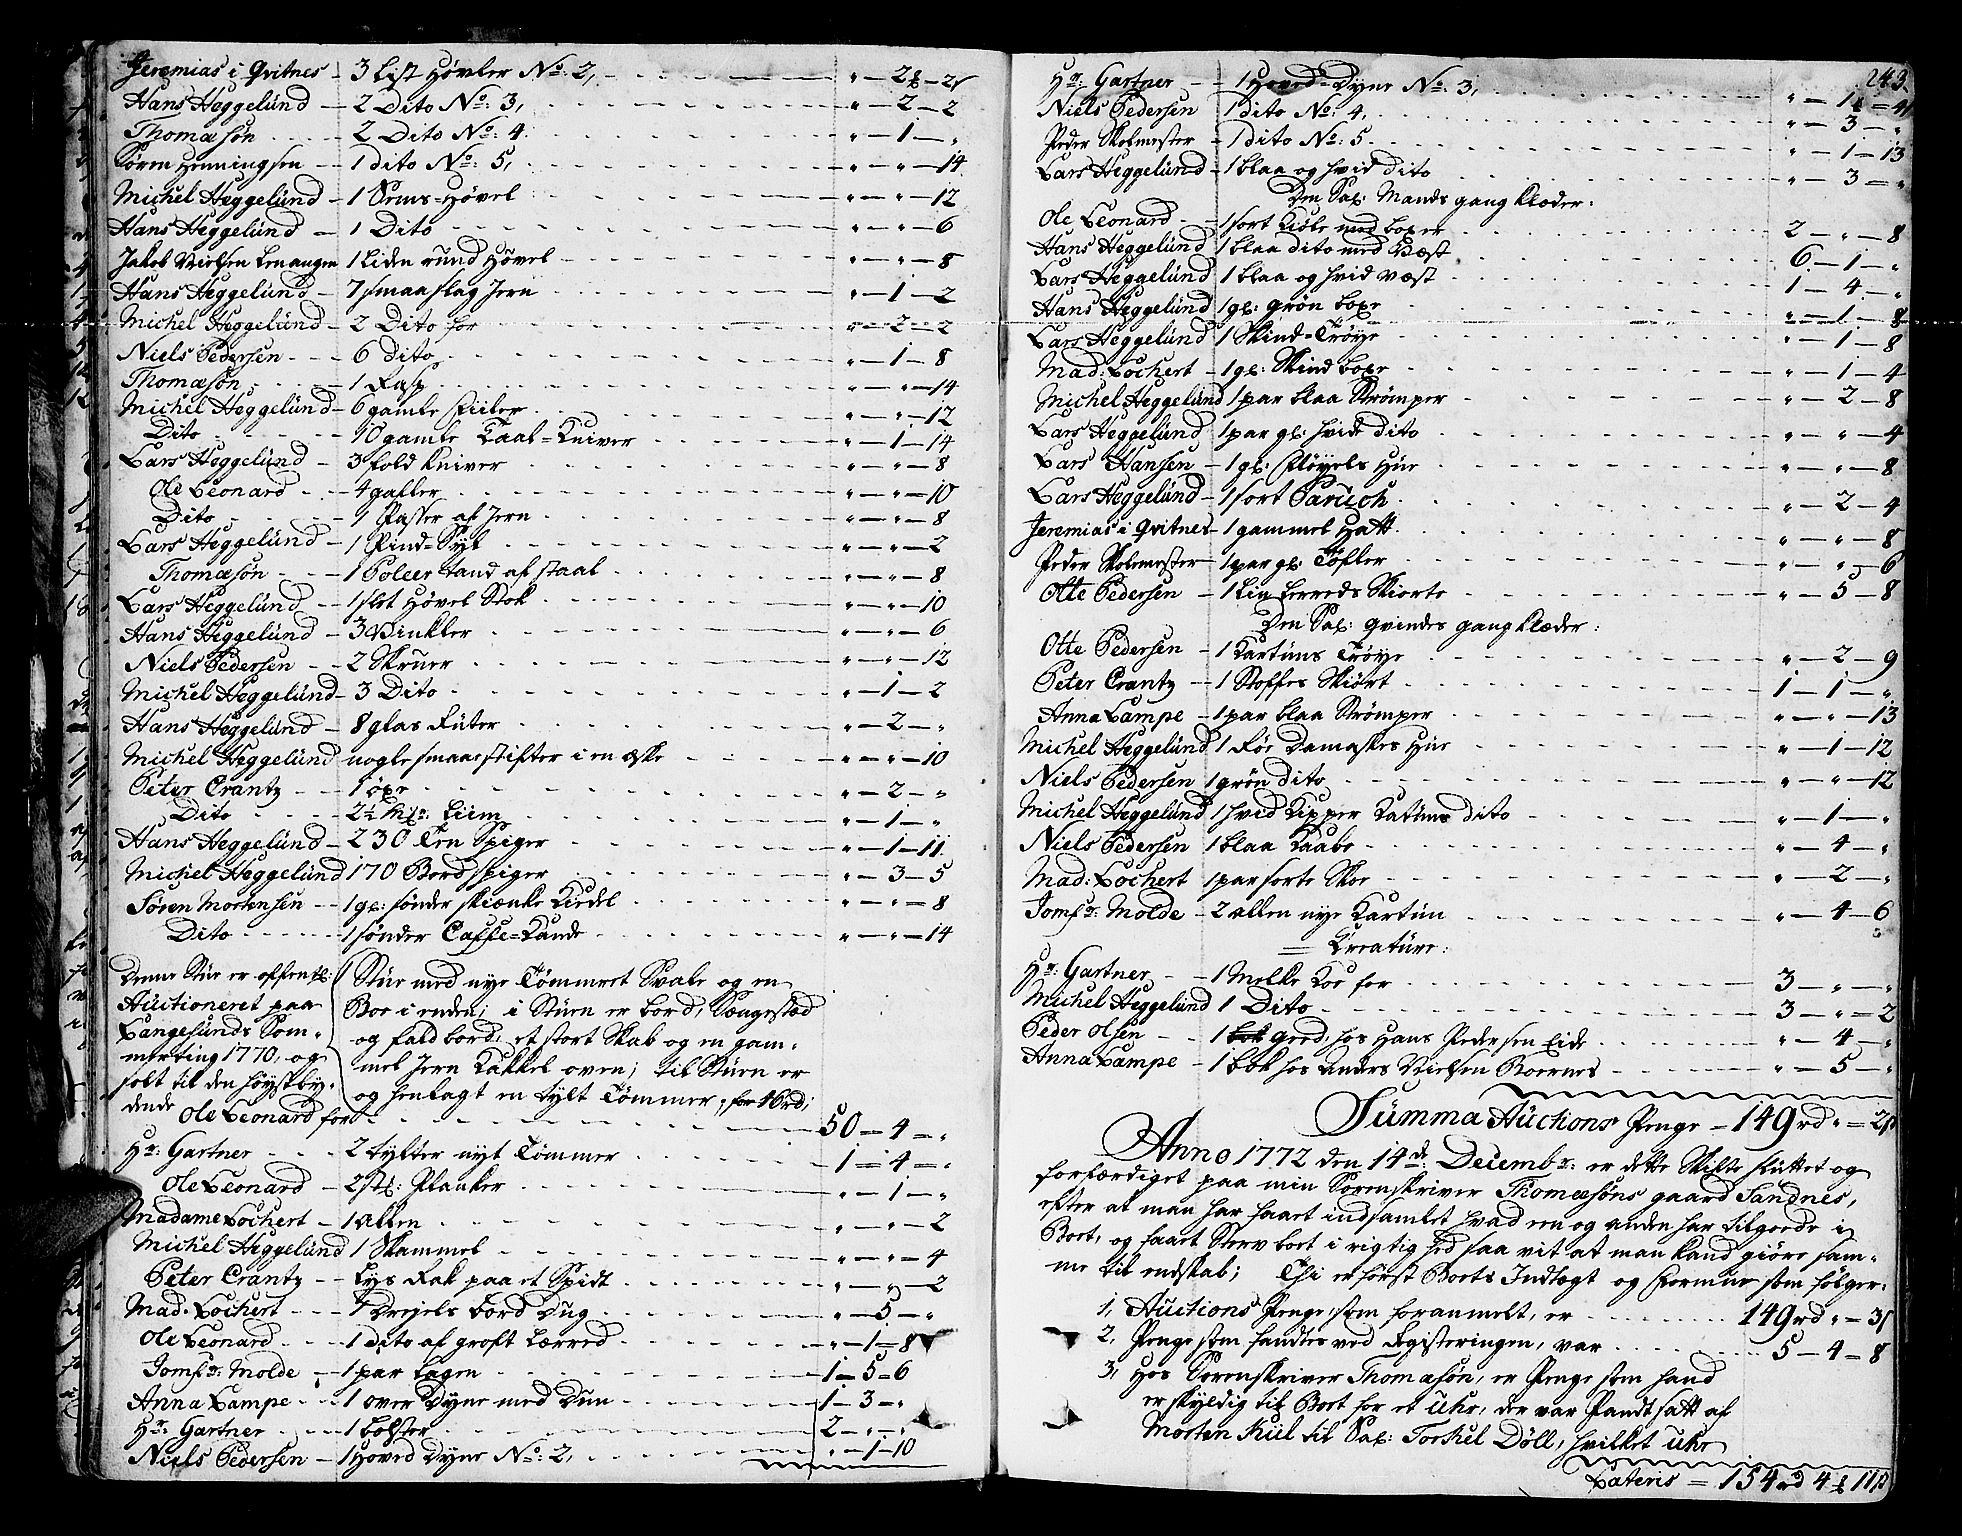 Jeremias i Qvitnes - 3 List Høvler No: 2, " - 2 - 2
Hans Heggelund - 2 Dito No: 3, " - 2 - 2
Thomæsøn - 2 Dito No: 4. " - 1 - "
Søren Henningsen - 1 dito No: 5, " - " - 14
Michel Heggelund - 1 -Høvel " - " - 12
Hans Heggelund - 1 Dito " - " - 6
Jakob Nielsen Lenangen 1 Liden rund Høvel " - " - 8
Hans Heggelund - 7 smaa slag Jern " - 1 - 2
Michel Heggelund - 2 Dito for " - 2 - 2
Niels Pedersen - 6 dito " - 1 - 8
Thomæsøn - 1 Rasp " - " - 14
Michel Heggelund - 6 gamle fiiler " - " - 12
Dito - 10 gamle Taal-Kniver " - 1 - 14
Lars Heggelund - 3 fold Kniver " - " - 8
Ole Leonard - 4 galler " - " - 10
Dito - 1 Passer af Jern " - " - 8
Lars Heggelund - 1 Pind-Syl " - " - 2
Thomæsøn - 1 Poleer tand af staal " - " - 8
Lars Heggelund - 1 slet Høvel Stok " - " - 10
Hans Heggelund - 3 Vinkler " - " - 6
Niels Pedersen - 2 Skruer " - " - 12
Michel Heggelund - 3 Dito " - 1 - 2
Hans Heggelund - 8 glas Ruter " - 2 - "
Michel Heggelund nogle smaae stifter i en æske " - " - 10
Peter Crantz - 1 øxe " - 2 - "
Dito - 2½ Liim " - 1 - "
Hans Heggelund - 230 Spiger " - 1 - 11
Michel Heggelund 170 Bordspiger " - 3 - 5
Søren Mortensen - 1 gl: sønder skienke Kiedel " - " - 8
Dito - 1 sønder Caffe-Kande " - " - 14
Denne Stue er offentl: Auctioneret paa Langesunds Sommerting 1770, og solt til den høystbydende
1 Stue med nye Tømmeret Svale og en
Boe i enden; i Stuen er bord, Sængested
og fald bord, et stort Skab og en gam-
mel Jern Kakkel oven; til Stuen er
og henlagt en tylt Tømmer, for 16rd;
Ole Leonard for 50 - 4 - "
Hr: Gartner - 2 tylter nyt Tømmer 1 - 4 - "
Ole Leonard - 2 stk: Planker " - 1 - "
Madame Lochert - 1 allen " - " - 2
Michel Heggelund 1 Skammel " - " - 4
Peter Crantz - Lys Rak paa et Spidt " - " - 2
Mad: Lochert - 1 Drejels bord Dug " - 5 - "
Ole Leonard - 1 dito af groft Lærred " - 1 - 8
Jomfr: Molde - 1 par lagen 1 - 5 - 6
Anna Lampe - 1 over Dyne med Dun 1 - 3 - "
Hr: Gartner - 1 bolster 2 - " - "
Niels Pedersen - 1 Hoved Dyne No: 2, " - 1 - 10
243.
Hr: Gartner - 1 Hoved-Dyne No: 3, " - 1 - 4
Niels Pedersen 1 dito No: 4, " - 3 - "
Peder Skolmester - 1 dito No: 5. " - 1 - 13
Lars Heggelund - 1 blaa og hvid dito " - 3 - "
Den Sal: Mands gang Klæder:
Ole Leonard - 1 sort Kiole med boxer 2 - " - 8
Hans Heggelund 1 blaa dito med Væst 6 - 1 - "
Lars Heggelund 1 blaa og hvid væst 1 - 4 - "
Hans Heggelund 1 gl: grøn boxe " - 1 - 8
Lars Heggelund 1 Skind-Trøye " - 1 - 8
Mad: Lochert - 1 gl: Skind boxe " - 1 - 4
Michel Heggelund 1 par blaa Strømper " - 2 - 8
Lars Heggelund 1 par gl: hvide dito " - " - 4
Lars Hansen - 1 gl: Fløyels Hue " - " - 8
Lars Heggelund - 1 sort Paruch " - 2 - 4
Jeremias i Qvitnes - 1 gammel Hatt " - " - 8
Peder Skolemester - 1 par gl: Tøfler " - " - 6
Otte Pedersen - 1 Lin Lerreds Skiorte " - 5 - 8
Den Sal: qvindes gang Klæder:
Otte Pedersen - 1 Kartuns Trøye " - 2 - 9
Peter Crantz - 1 Stoffes Skiørt 1 - 1 - "
Anna Lampe - 1 par blaa Strømper " - " - 13
Michel Heggelund 1 Rør Damaskes Hue " - 1 - 12
Niels Pedersen 1 grøn dito " - " - 12
Michel Heggelund 1 hvid Kipper Kattuns dito " - 1 - "
Niels Pedersen 1 blaa Kaabe " - 4 - "
Mad: Lochert 1 par sorte Skoe " - 2 - "
Jomfr: Molde - 2 allen nye Kartun " - 4 - 6
Creature:
Hr: Gartner - 1 Melke Koe for 3 - " - "
Michel Heggelund 1 Dito 3 - " - 2
Peder Olsen - 1 bok geed, hos Hans Pedersen Eide " - 4 - "
Anna Lampe - 1 bok hos Anders Nielsen Roernes " - 5 - "
Summa Auctions Penge - 149rd " - 2
Anno 1772 den 14de Decembr: er dette Skifte sluttet og
forfærdiget paa min Sorenskriver Thomæsøns gaard Sandnes,
efter at man har faaet indsamlet hvad een og anden har tilgode i
Boet, og faaet Sterv boet i rigtighed saa vit at man kand giøre sam-
me til endskab; Thi er først Boets Indtægt og Formue som følger:
1, Auctions Penge, som foranmelt, er 149rd " - 3
2, Penge som fandtes ved Registeringen, var 5 - 4 - 8
3, Hos Sorenskriver Thomæsøn, er Penge som hand
er skyldig til Boet for et Uhr, der var Pandtsatt af
Morten Kiil til Sal: Torkel Döll, hvilket Uhr
Lateris = 154rd 4 11